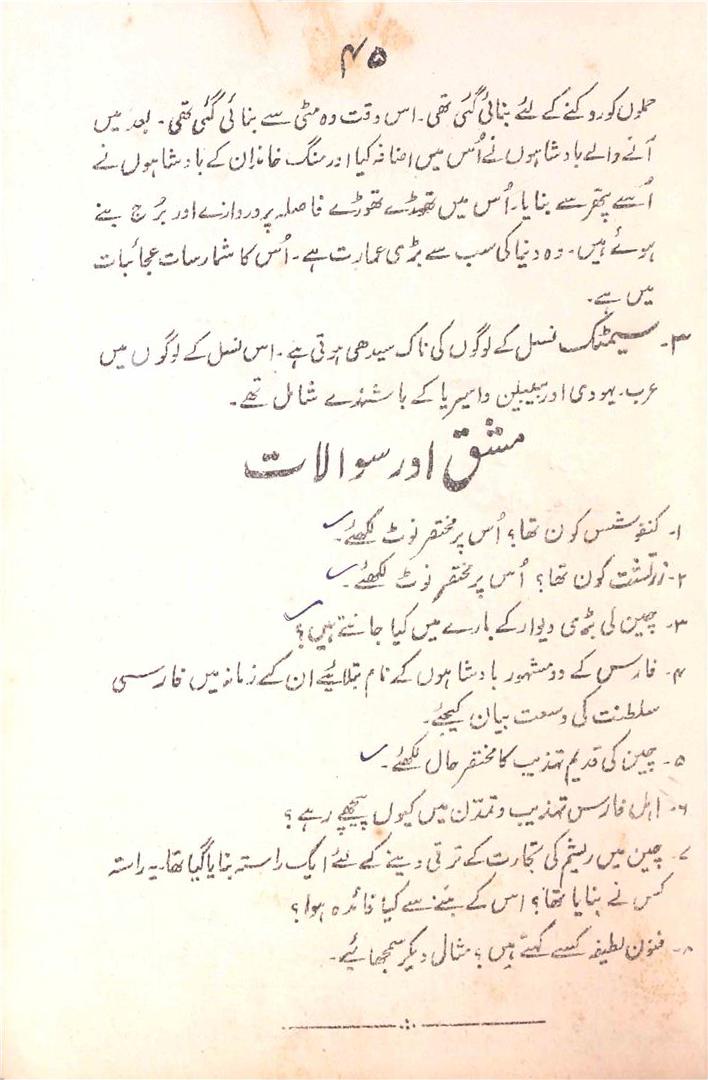 ۴۵
حملوں کو روکنے کے لئے بنائی گئی تھی۔ اس وقت وہ مٹی سے بنائی گئی تھی۔ بعد میں
آنے والے بادشاہوں نے اُس میں اضافہ کیا اور منگ خاندان کے بادشاہوں نے
اُسے پتھر سے بنایا۔ اُس میں تھوڑے تھوڑے فاصلہ پر دروازے اور بُرج بنے
ہوئے ہیں۔ وہ دنیا کی سب سے بڑی عمارت ہے۔ اُس کا شمار سات عجائبات
میں ہے۔
۳۔ سیمٹک نسل کے لوگوں کی ناک سیدھی ہوتی ہے۔ اس نسل کے لوگوں میں
عرب۔ یہودی اور بیبیلین و اسیریا کے باشندے شامل تھے۔
مشق اور سوالات
۱۔ کنفوشس کون تھا؟ اُس پر مختصر نوٹ لکھئے۔
۲۔ زرتشت کون تھا؟ اُس پر مختصر نوٹ لکھئے۔
۳۔ چین کی بڑی دیوار کے بارے میں کیا جانتے ہیں؟
۴۔ فارس کے دو مشہور بادشاہوں کے نام بتلائیے ان کے زمانہ میں فارسی
سلطنت کی وسعت بیان کیجئے۔
۵۔ چین کی قدیم تہذیب کا مختصر حال لکھئے۔
۶۔ اہل فارس تہذیب و تمدّن میں کیوں پیچھے رہے؟
۷۔ چین میں ریشم کی تجارت کے ترقی دینے کے لئے ایک راستہ بنایا گیا تھا۔ یہ راستہ
کس نے بنایا تھا؟ اس کے بننے سے کیا فائدہ ہوا؟
۸۔ فنون لطیفہ کسے کہتے ہیں؟ مثال دیکر سمجھائیے۔